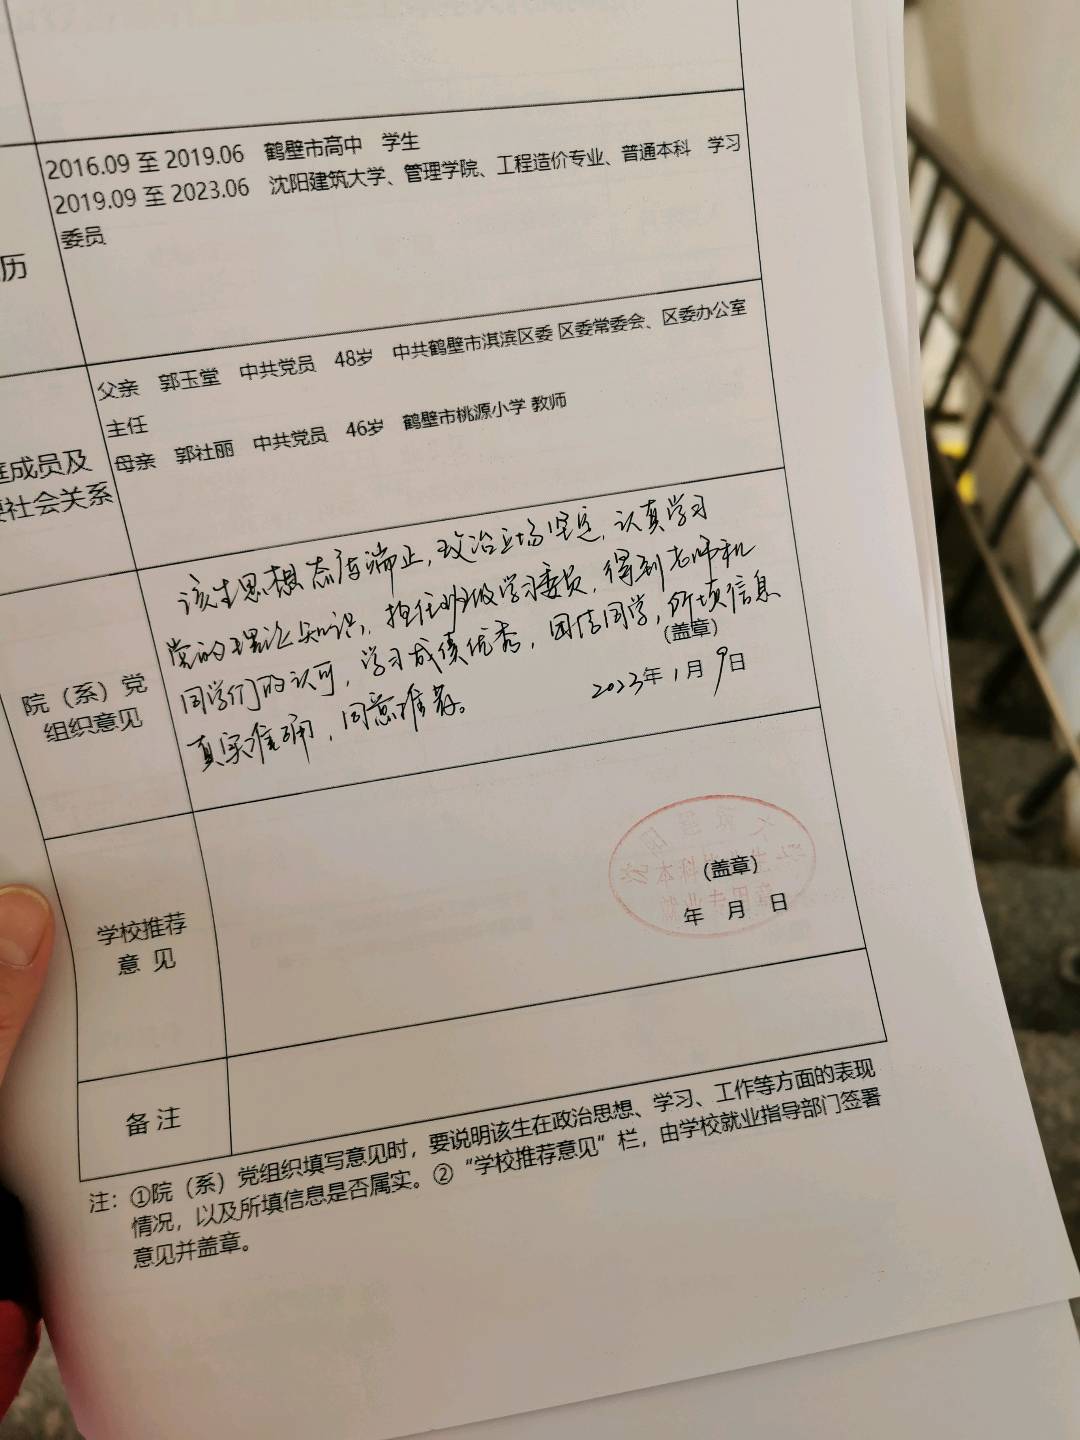 2016.09 至 2019.06 鹤壁市高中 学生
2019.09 至 2023.06 沈阳建筑大学、管理学院、工程造价专业、普通本科 学习
委员
历
父亲 郭玉堂 中共党员 48岁 中共鹤壁市淇滨区委 区委常委会、区委办公室
主任
母亲 郭社丽 中共党员 46岁 鹤壁市桃源小学 教师
庭成员及
要社会关系
该生思想态度端正，政治立场坚定，认真学习
党的理论知识，担任班级学习委员，得到老师和
同学们的认可，学习成绩优秀，团结同学，所填信息
真实准确，同意推荐。
(盖章)
2023年1月9日
院（系）党
组织意见
学校推荐
意 见
沈阳建筑大学
本科毕业生
就业专用章
(盖章)
年 月 日
备 注
注：①院（系）党组织填写意见时，要说明该生在政治思想、学习、工作等方面的表现
情况，以及所填信息是否属实。②“学校推荐意见”栏，由学校就业指导部门签署
意见并盖章。